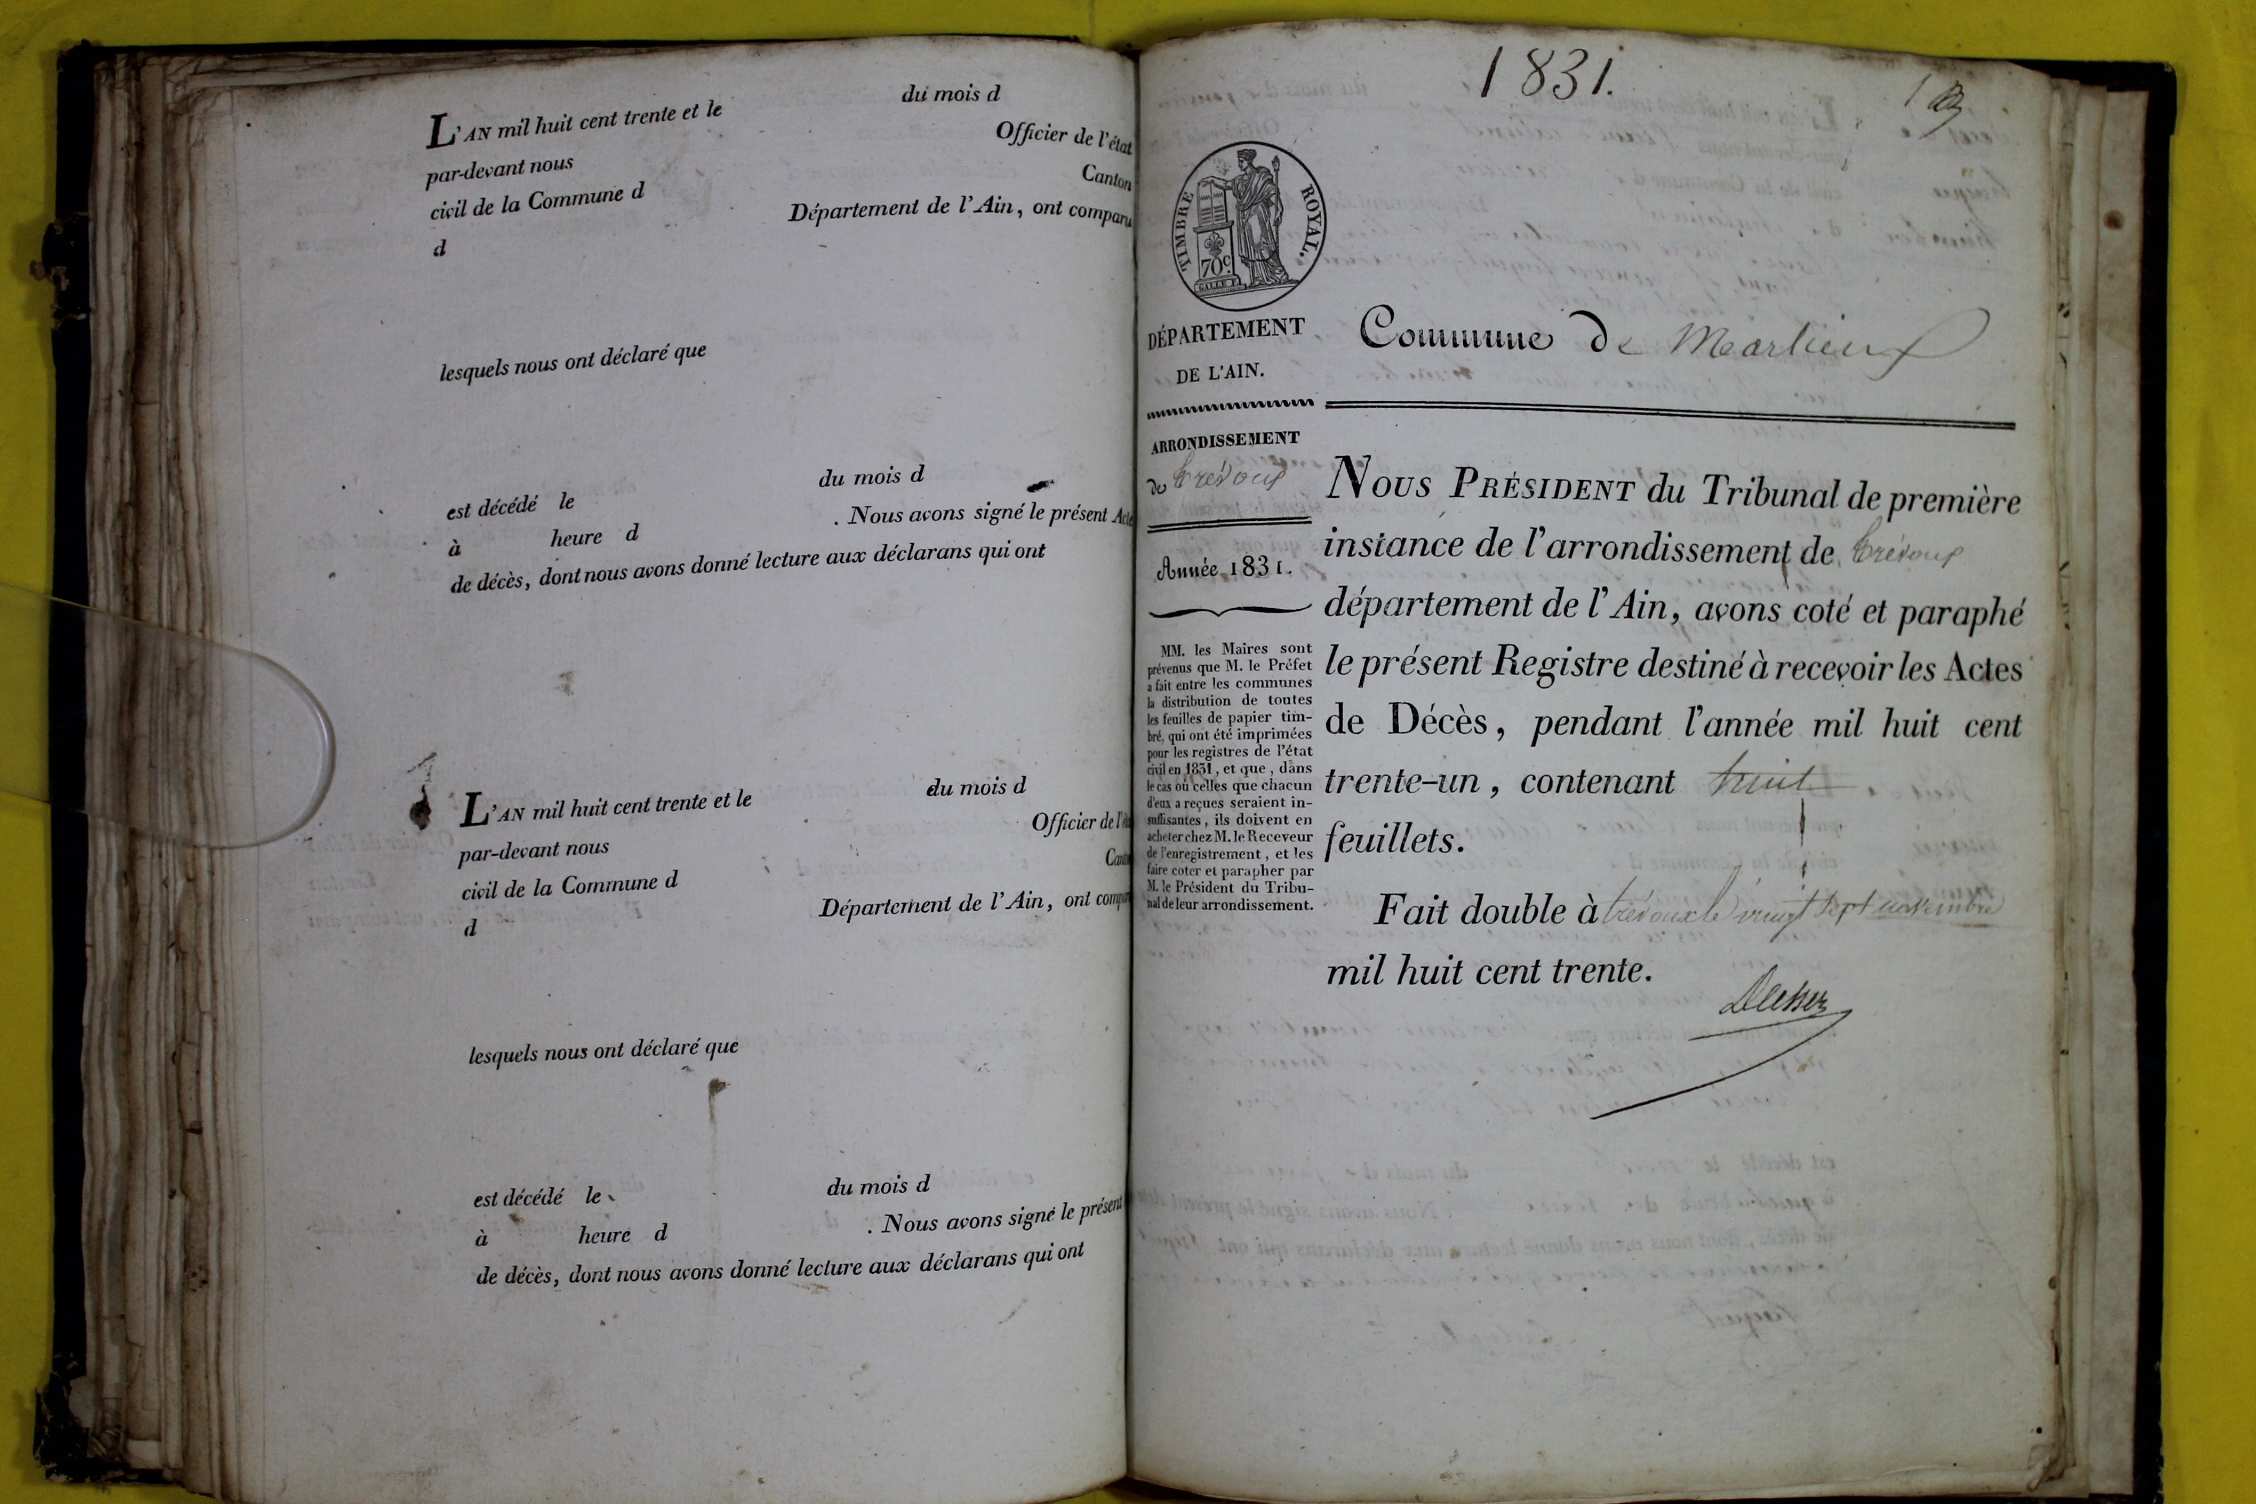 L'AN mil huit cent trente et le du mois d
par-devant nous Officier de l'état
civil de la Commune d Canton
d Département de l'Ain, ont comparu
lesquels nous ont déclaré que
est décédé le du mois d
à heure d . Nous avons signé le présent Acte
de décès, dont nous avons donné lecture aux déclarans qui ont
L'AN mil huit cent trente et le du mois d
par-devant nous Officier de l'
civil de la Commune d
d Département de l'Ain, ont
lesquels nous ont déclaré que
est décédé le du mois d
à heure d . Nous avons signé le présent
de décès, dont nous avons donné lecture aux déclarans qui ont
1831.
TIMBRE ROYAL.
70 c.
GALLE F.
DÉPARTEMENT
DE L'AIN.
Commune de Marlieux
ARRONDISSEMENT
de Trévoux
Année 1831.
MM. les Maires sont
prévenus que M. le Préfet
a fait entre les communes
la distribution de toutes
les feuilles de papier tim-
bré, qui ont été imprimées
pour les registres de l'état
civil en 1831, et que, dans
le cas où celles que chacun
d'eux a reçues seraient in-
suffisantes, ils doivent en
acheter chez M. le Receveur
de l'enregistrement, et les
faire coter et parapher par
M. le Président du Tribu-
nal de leur arrondissement.
NOUS PRÉSIDENT du Tribunal de première
instance de l'arrondissement de Trévoux
département de l'Ain, avons coté et paraphé
le présent Registre destiné à recevoir les Actes
de Décès, pendant l'année mil huit cent
trente-un, contenant huit
feuillets.
Fait double à trévoux le vingt sept novembre
mil huit cent trente.